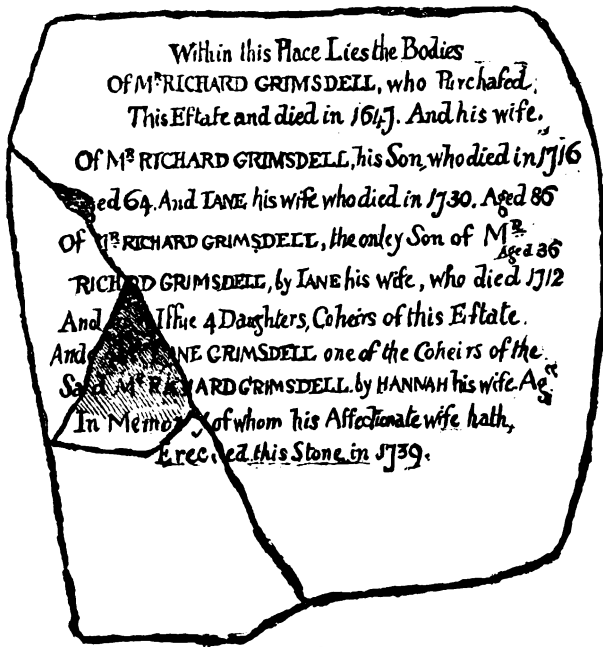 Within this Place Lies the Bodies
Of Mᴿ RICHARD GRIMSDELL, who Purchased
This Estate and died in 1647. And his wife.
Of Mᴿ RICHARD GRIMSDELL, his Son, who died in 1716
ed 64. And IANE his wife who died in 1730. Aged 86
Of Mᴿ RICHARD GRIMSDELL, the onley Son of Mᴿ
Aged 36
RICHARD GRIMSDELL, by IANE his wife, who died 1712
And Issue 4 Daughters, Coheirs of this Estate.
And ANE GRIMSDELL one of the Coheirs of the
Said Mᴿ RICHARD GRIMSDELL. by HANNAH his wife Ag
In Memory of whom his Affectionate wife hath,
Erected this Stone in 1739.